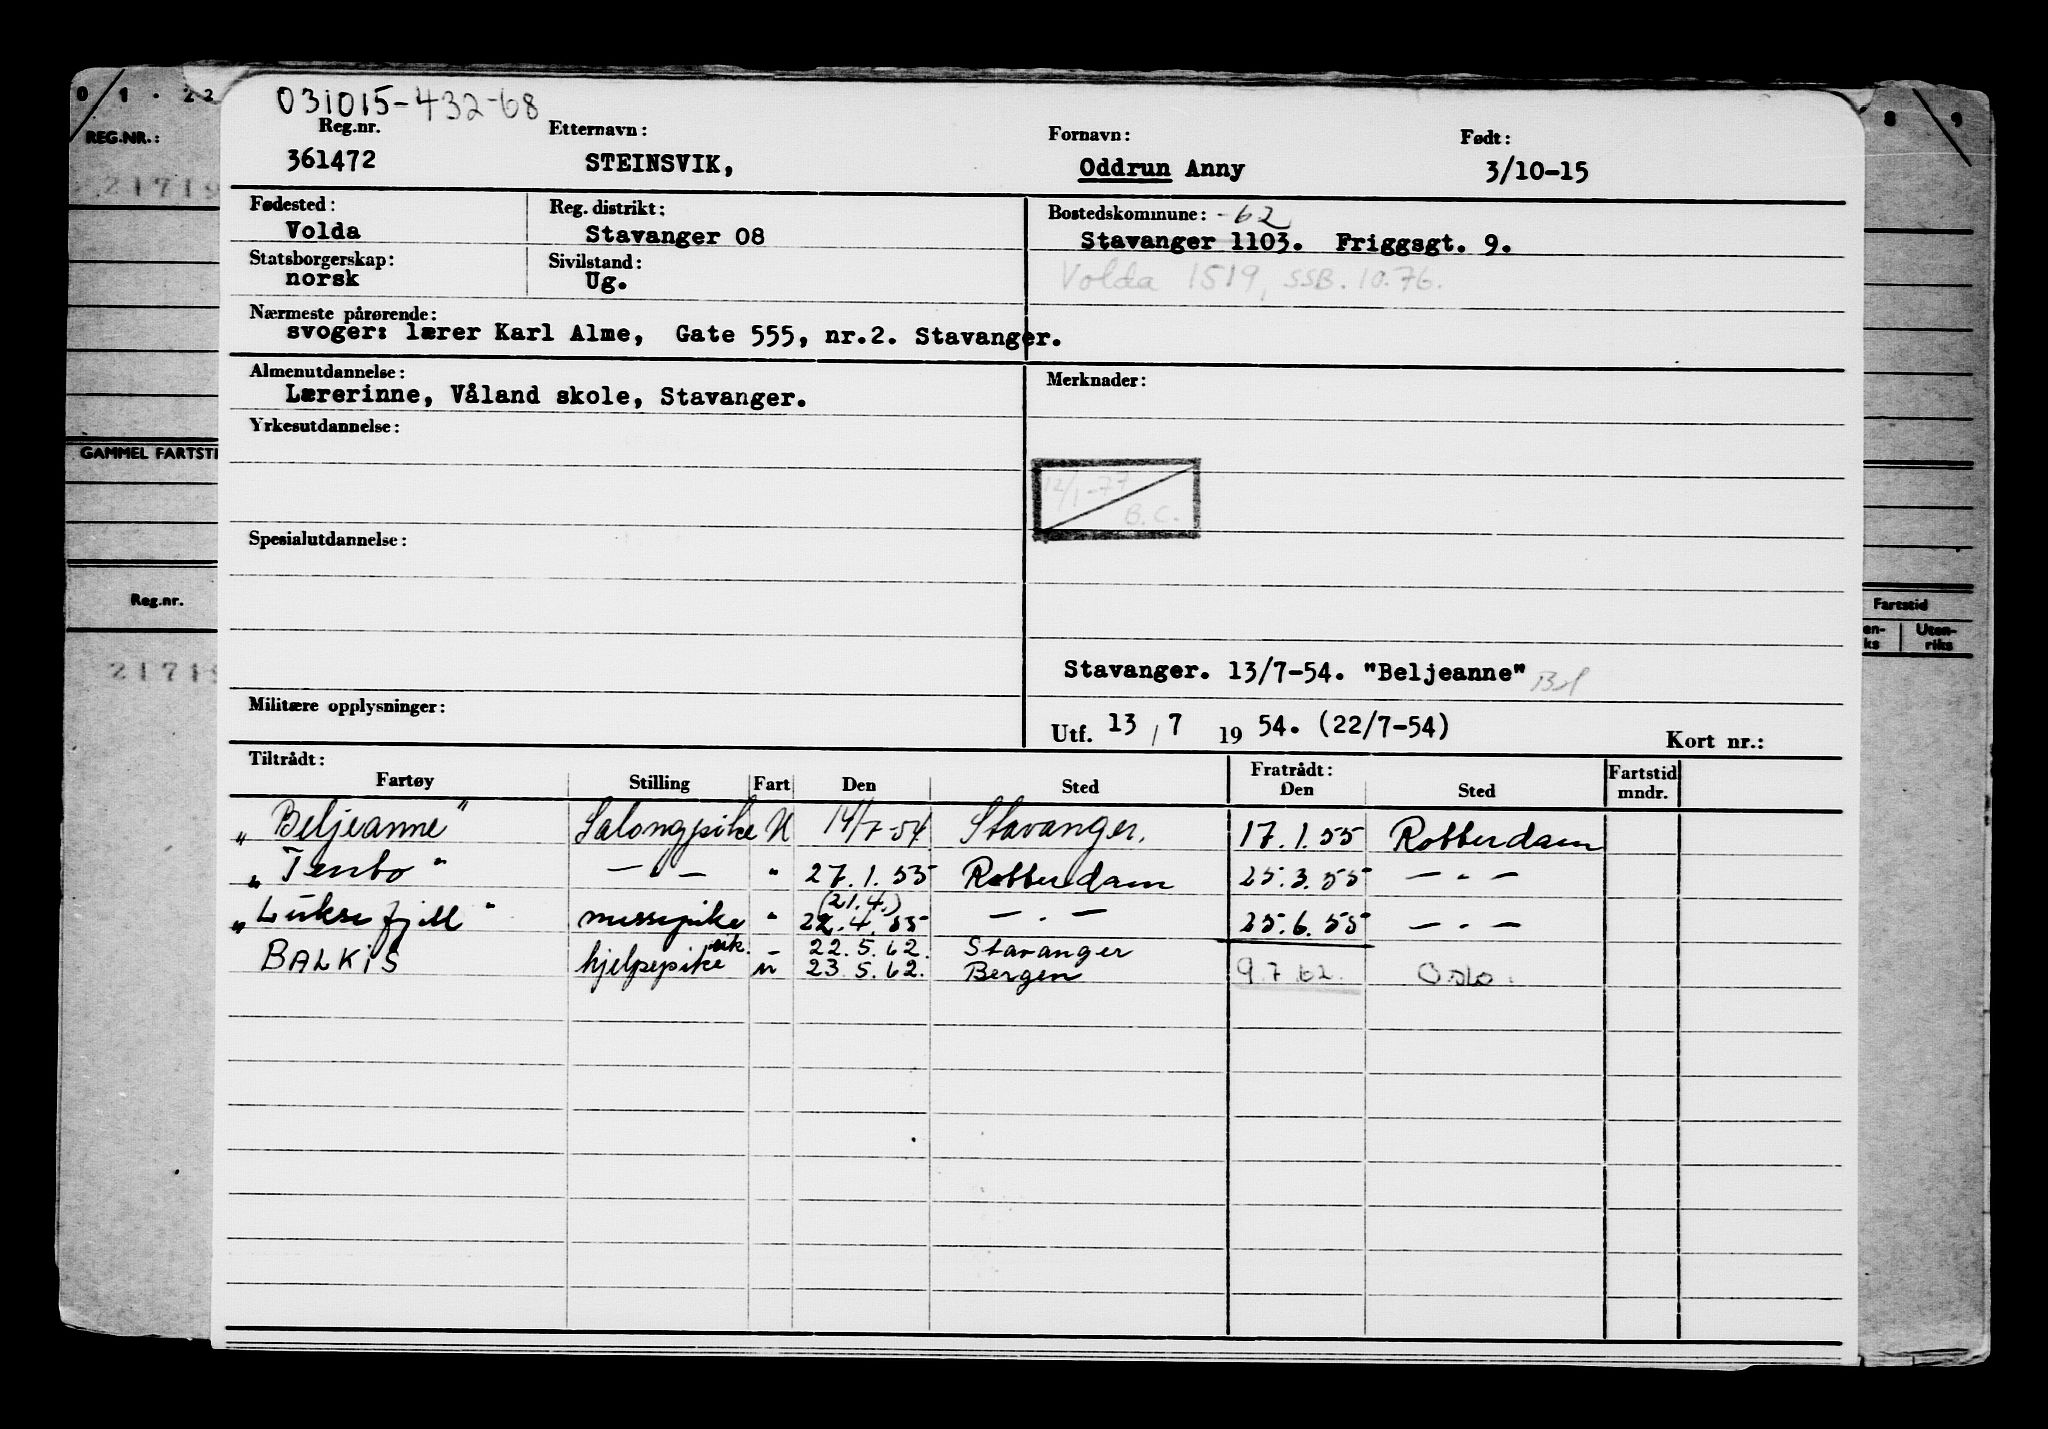 0 1 . 22
8 9
REG.NR.:
21719
GAMMEL FARTSTI
Reg.nr.
21719
Fartstid
en-
ks
Uten-
riks
031015-432-68
Reg.nr. Etternavn: Fornavn: Født:
361472 STEINSVIK, Oddrun Anny 3/10-15
Fødested: Reg. distrikt: Bostedskommune: -62
Volda Stavanger 08 Stavanger 1103. Friggsgt. 9.
Statsborgerskap: Sivilstand:
norsk Ug. Volda 1519, SSB. 10.76.
Nærmeste pårørende:
svoger: lærer Karl Alme, Gate 555, nr.2. Stavanger.
Almenutdannelse: Merknader:
Lærerinne, Våland skole, Stavanger.
Yrkesutdannelse:
12/1-77
B.C.
Spesialutdannelse:
Stavanger. 13/7-54. "Beljeanne"
Militære opplysninger:
Utf. 13 / 7 19 54. (22/7-54) Kort nr.:
Tiltrådt: Fratrådt: Fartstid
Fartøy Stilling Fart Den Sted Den Sted mndr.
"Beljeanne" Salongpike U 14/7-54 Stavanger. 17.1.55 Rotterdam
"Tenbo" — — " 27.1.55 Rotterdam 25.3.55 — " —
(21.4.)
"Luksefjell" messepike " 22.4.55 — . — 25.6.55 — " —
vik. 22.5.62. Stavanger
BALKIS hjelpepike u 23.5.62. Bergen 9.7.62. Oslo.